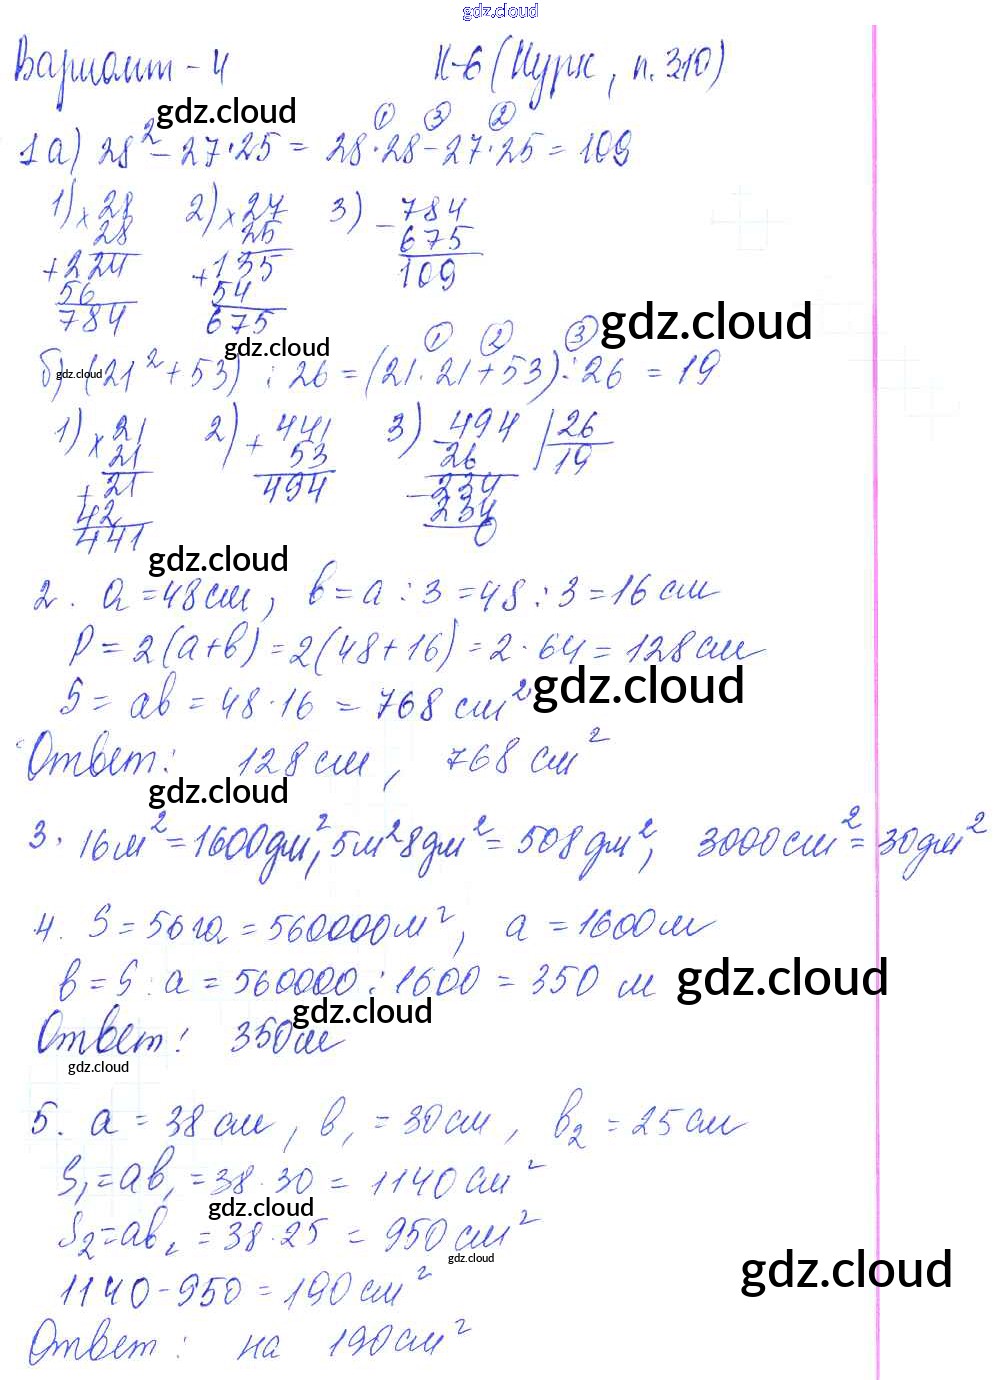 gdz.cloud
Вариант - 4 К-6 (Нурк, п. 310)
gdz.cloud
① ③ ②
1 а) 28² - 27·25 = 28·28 - 27·25 = 109
1) × 28 2) × 27 3) - 784
28 25 675
+ 224 + 135 109
56 54
784 675
gdz.cloud
gdz.cloud
① ② ③
б) (21² + 53) : 26 = (21·21 + 53) : 26 = 19
gdz.cloud
1) × 21 2) + 441 3) - 494 | 26
21 53 26 19
+ 21 494 - 234
42 234
441 0
gdz.cloud
2. a = 48 см, в = a : 3 = 48 : 3 = 16 см
P = 2(a+в) = 2(48+16) = 2·64 = 128 см
S = aв = 48·16 = 768 см²
gdz.cloud
Ответ: 128 см, 768 см²
gdz.cloud
3. 16м² = 1600дм², 5м² 8дм² = 508 дм², 3000см² = 30дм²
4. S = 56 га = 560000м², a = 1600 м
в = S : a = 560000 : 1600 = 350 м
gdz.cloud
gdz.cloud
Ответ: 350м
gdz.cloud
5. a = 38 см, в₁ = 30 см, в₂ = 25 см
S₁ = aв₁ = 38·30 = 1140 см²
gdz.cloud
S₂ = aв₂ = 38·25 = 950 см²
gdz.cloud
gdz.cloud
1140 - 950 = 190 см²
Ответ: на 190 см²